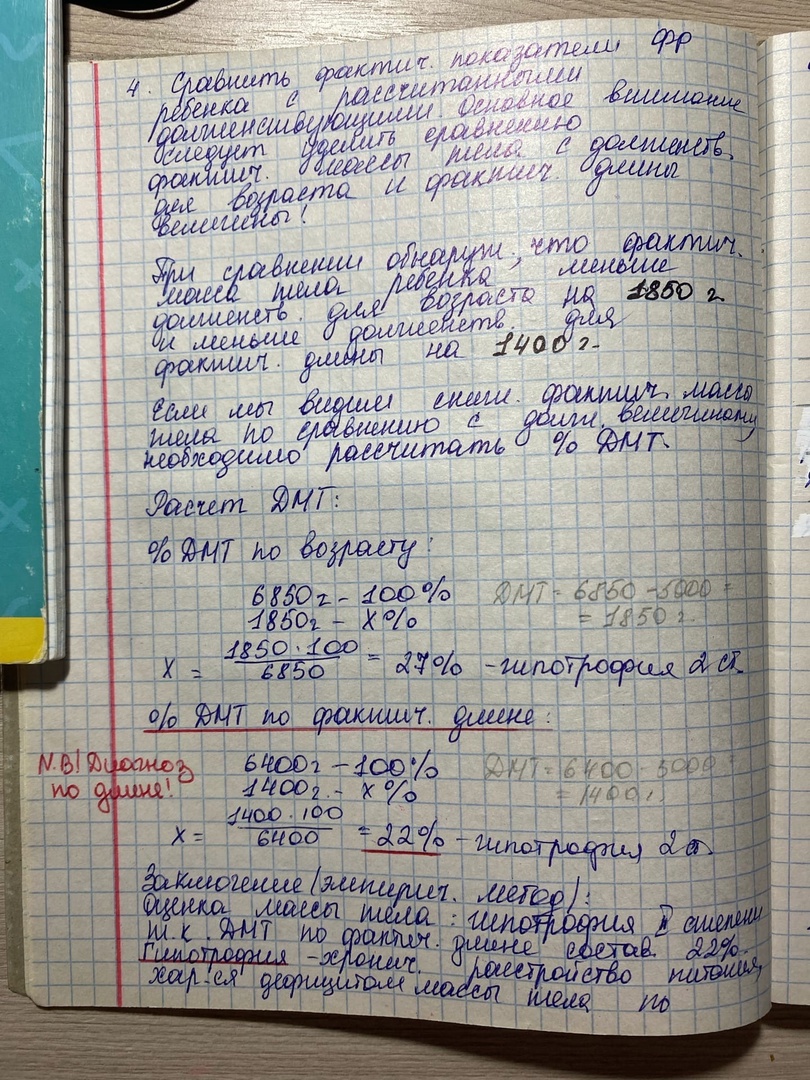 4. Сравнить фактич. показатели ФР
ребенка с рассчитанными
долженствующими. Основное внимание
следует уделить сравнению
фактич. массы тела с долженств.
для возраста и фактич. длины
величины!
При сравнении обнаруж., что фактич.
масса тела ребенка меньше
долженств. для возраста на 1850 г.
и меньше долженств. для
фактич. длины на 1400 г.
Если мы видим сниж. фактич. масса
тела по сравнению с долж. величиной,
необходимо рассчитать % ДМТ.
Расчет ДМТ:
% ДМТ по возрасту:
6850г – 100% ДМТ = 6850 – 5000 =
1850г – x% = 1850 г.
x = 1850 · 100 / 6850 = 27% – гипотрофия 2 ст.
% ДМТ по фактич. длине:
N.B! Диагноз
по длине!
6400г – 100% ДМТ = 6400 – 5000 =
1400г. – x% = 1400г.
x = 1400 · 100 / 6400 = 22% – гипотрофия 2 ст.
Заключение (эмпирич. метод):
оценка массы тела: гипотрофия II степени
т.к. ДМТ по фактич. длине состав. 22%.
Гипотрофия – хронич. расстройство питания,
хар-ся дефицитом массы тела по